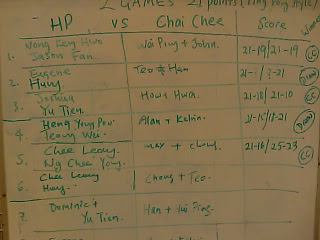 2 GAMES 21 points
HP vs Chai Chee Score
1. Wong Keng Hua
Jason Fan. Wai Ping + John. 21-19/21-19 CC
2. Eugene
Huny Teo + Han Draw
3. Joshua
Yu Tien. How + Hwa. 21-18/21-10 CC
4. Heng Yong Pou
Leong Wei. Alan + Kelvin. 21-15/18-21 Draw
5. Chee Leong
Ng Chee Yong. max + chong. 21-16/25-23 CC
6. Chee Leong
Huny. Chong + Teo.
7. Dominic +
Yu Tien. Han + Wai Ping.